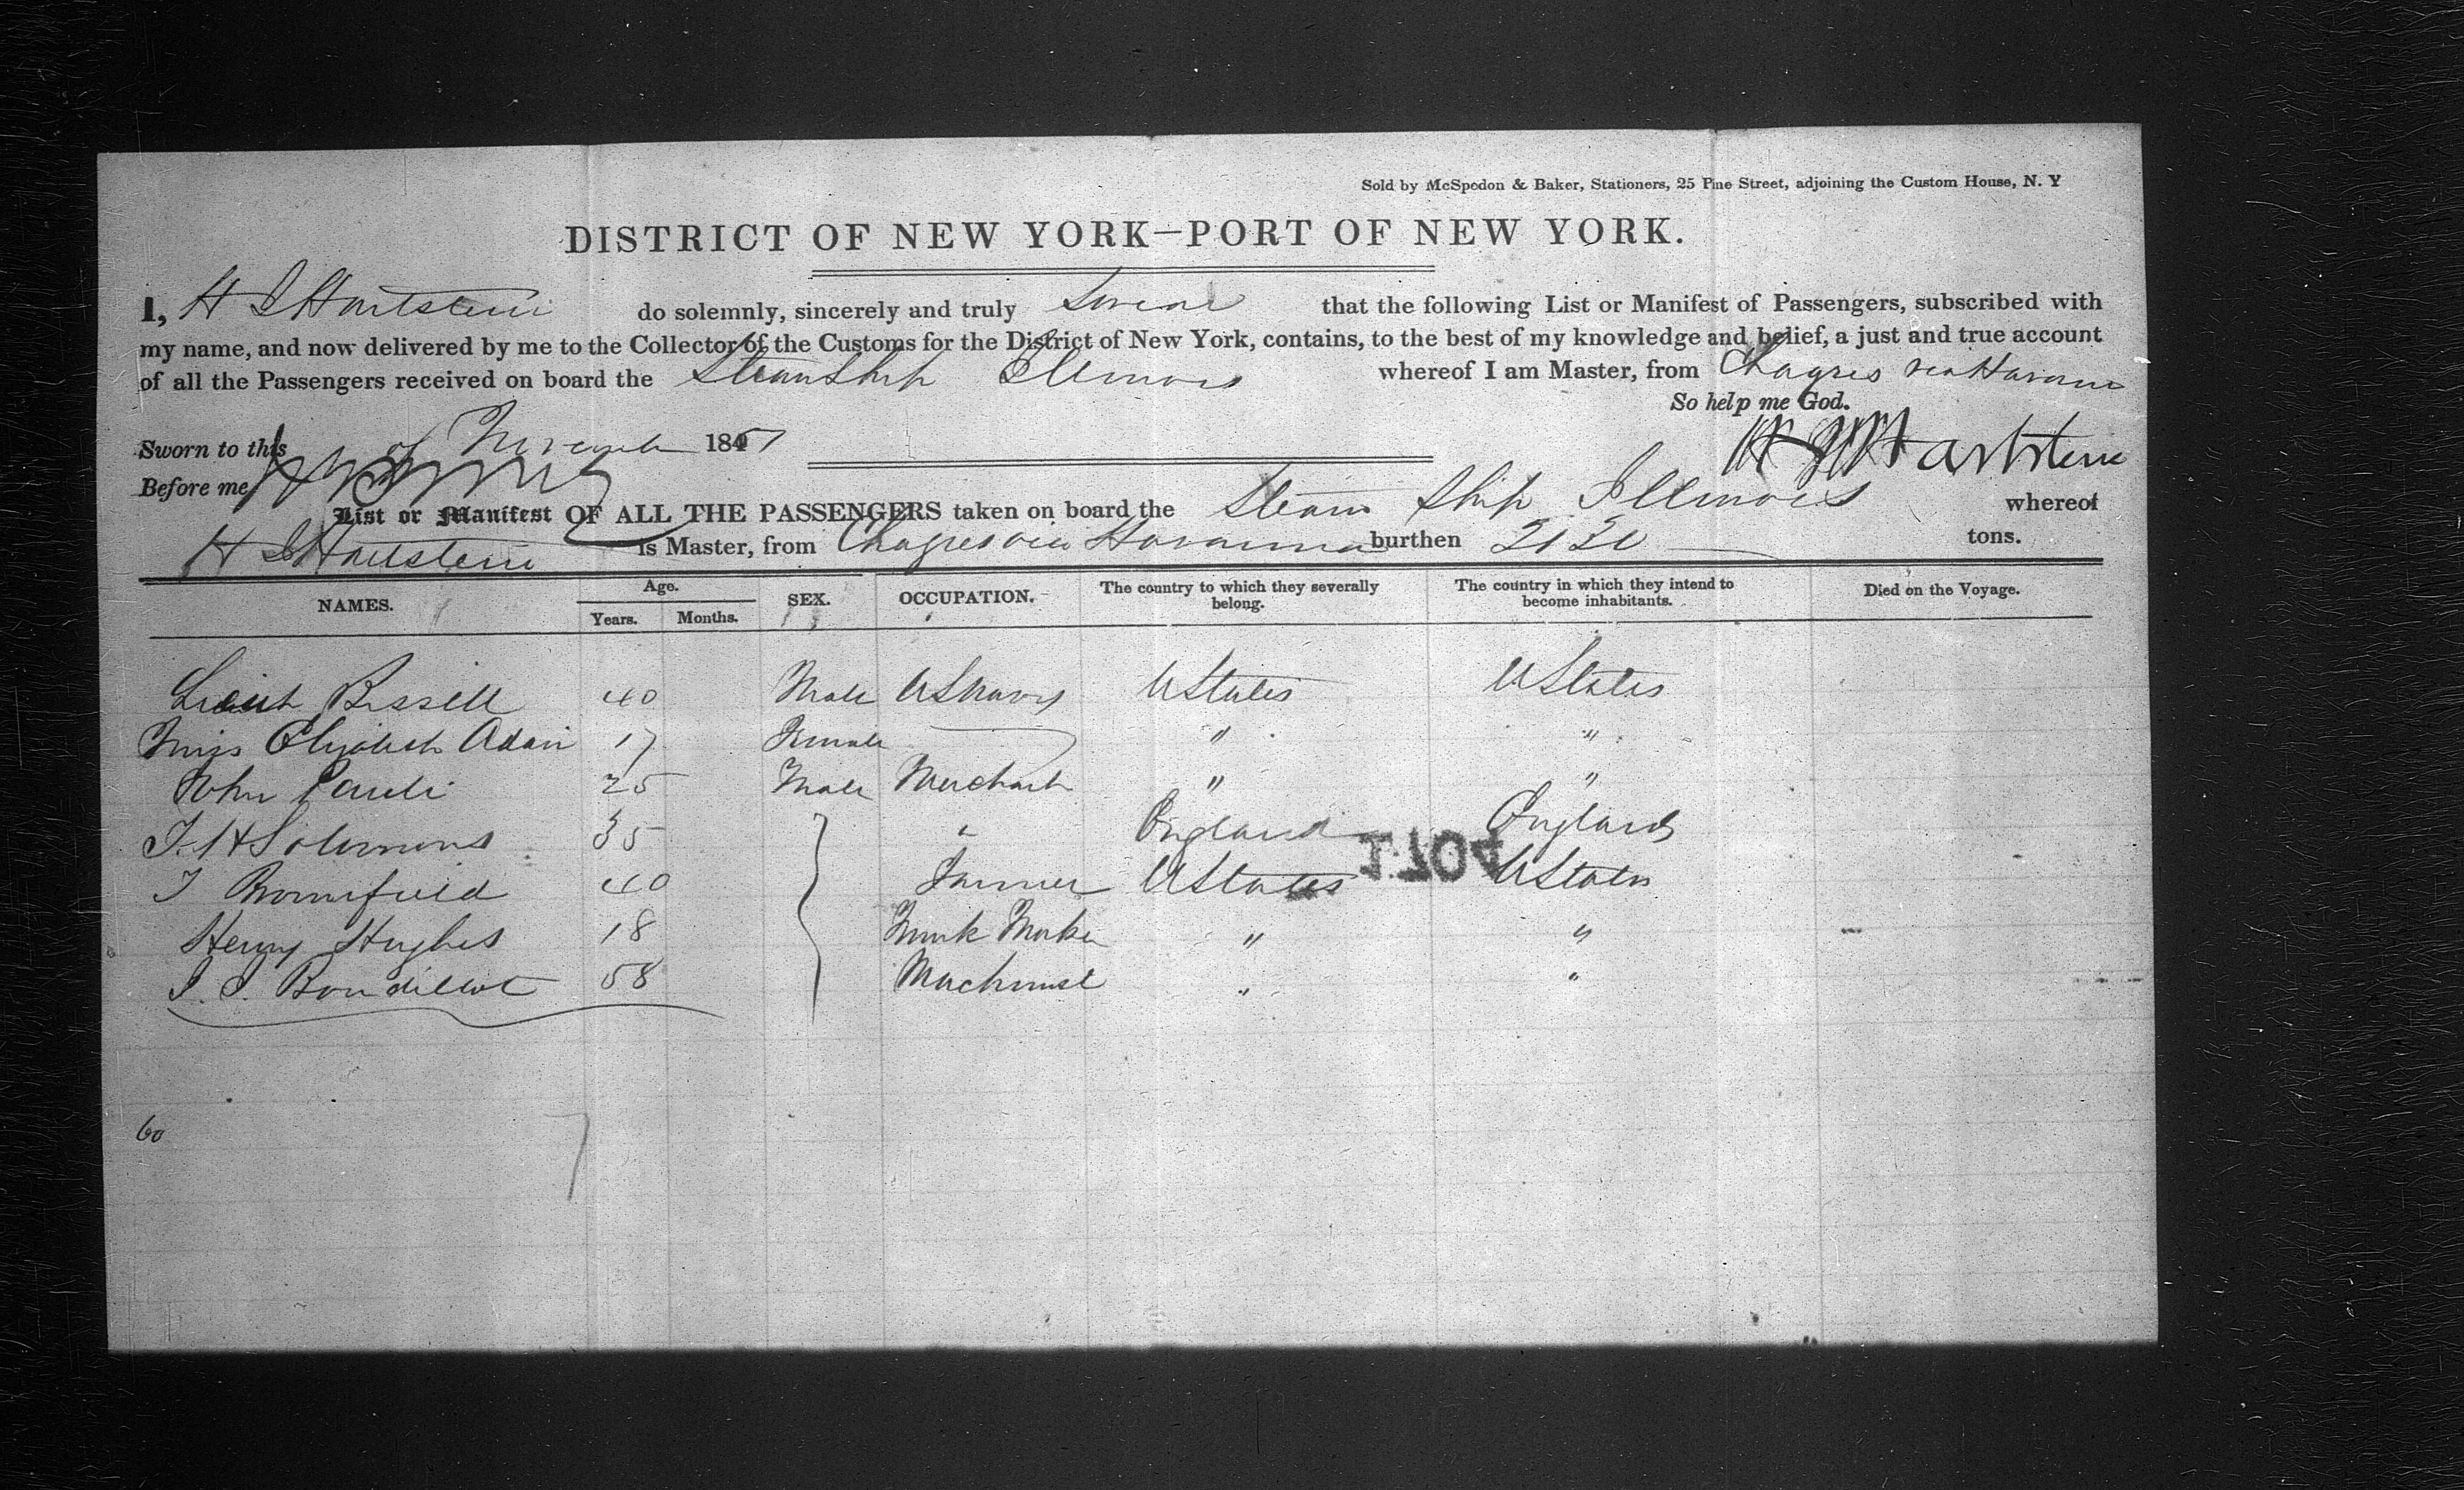 Sold by McSpedon & Baker, Stationers, 25 Pine Street, adjoining the Custom House, N. Y
DISTRICT OF NEW YORK—PORT OF NEW YORK.
I, H J Hartstein do solemnly, sincerely and truly Swear that the following List or Manifest of Passengers, subscribed with
my name, and now delivered by me to the Collector of the Customs for the District of New York, contains, to the best of my knowledge and belief, a just and true account
of all the Passengers received on board the Steam Ship Illinois whereof I am Master, from Chagres via Havana
So help me God.
Sworn to this of November 1851
H J Hartstein
Before me
List or Manifest OF ALL THE PASSENGERS taken on board the Steam Ship Illinois whereof
H J Hartstein is Master, from Chagres via Havanna burthen 2120 tons.
NAMES. Age. Years. Months. SEX. OCCUPATION. The country to which they severally belong. The country in which they intend to become inhabitants. Died on the Voyage.
Lieut Bissell 40 Male US Navy U States U States
Miss Elizabeth Adair 17 Female " "
John Pauli 25 Male Merchant " "
J. H Solomons 35 " England England
J Bromfield 40 Farmer U States U States
1704
Henry Hughes 18 Trunk Maker " "
J. J. 58 Machinist " "
60
7